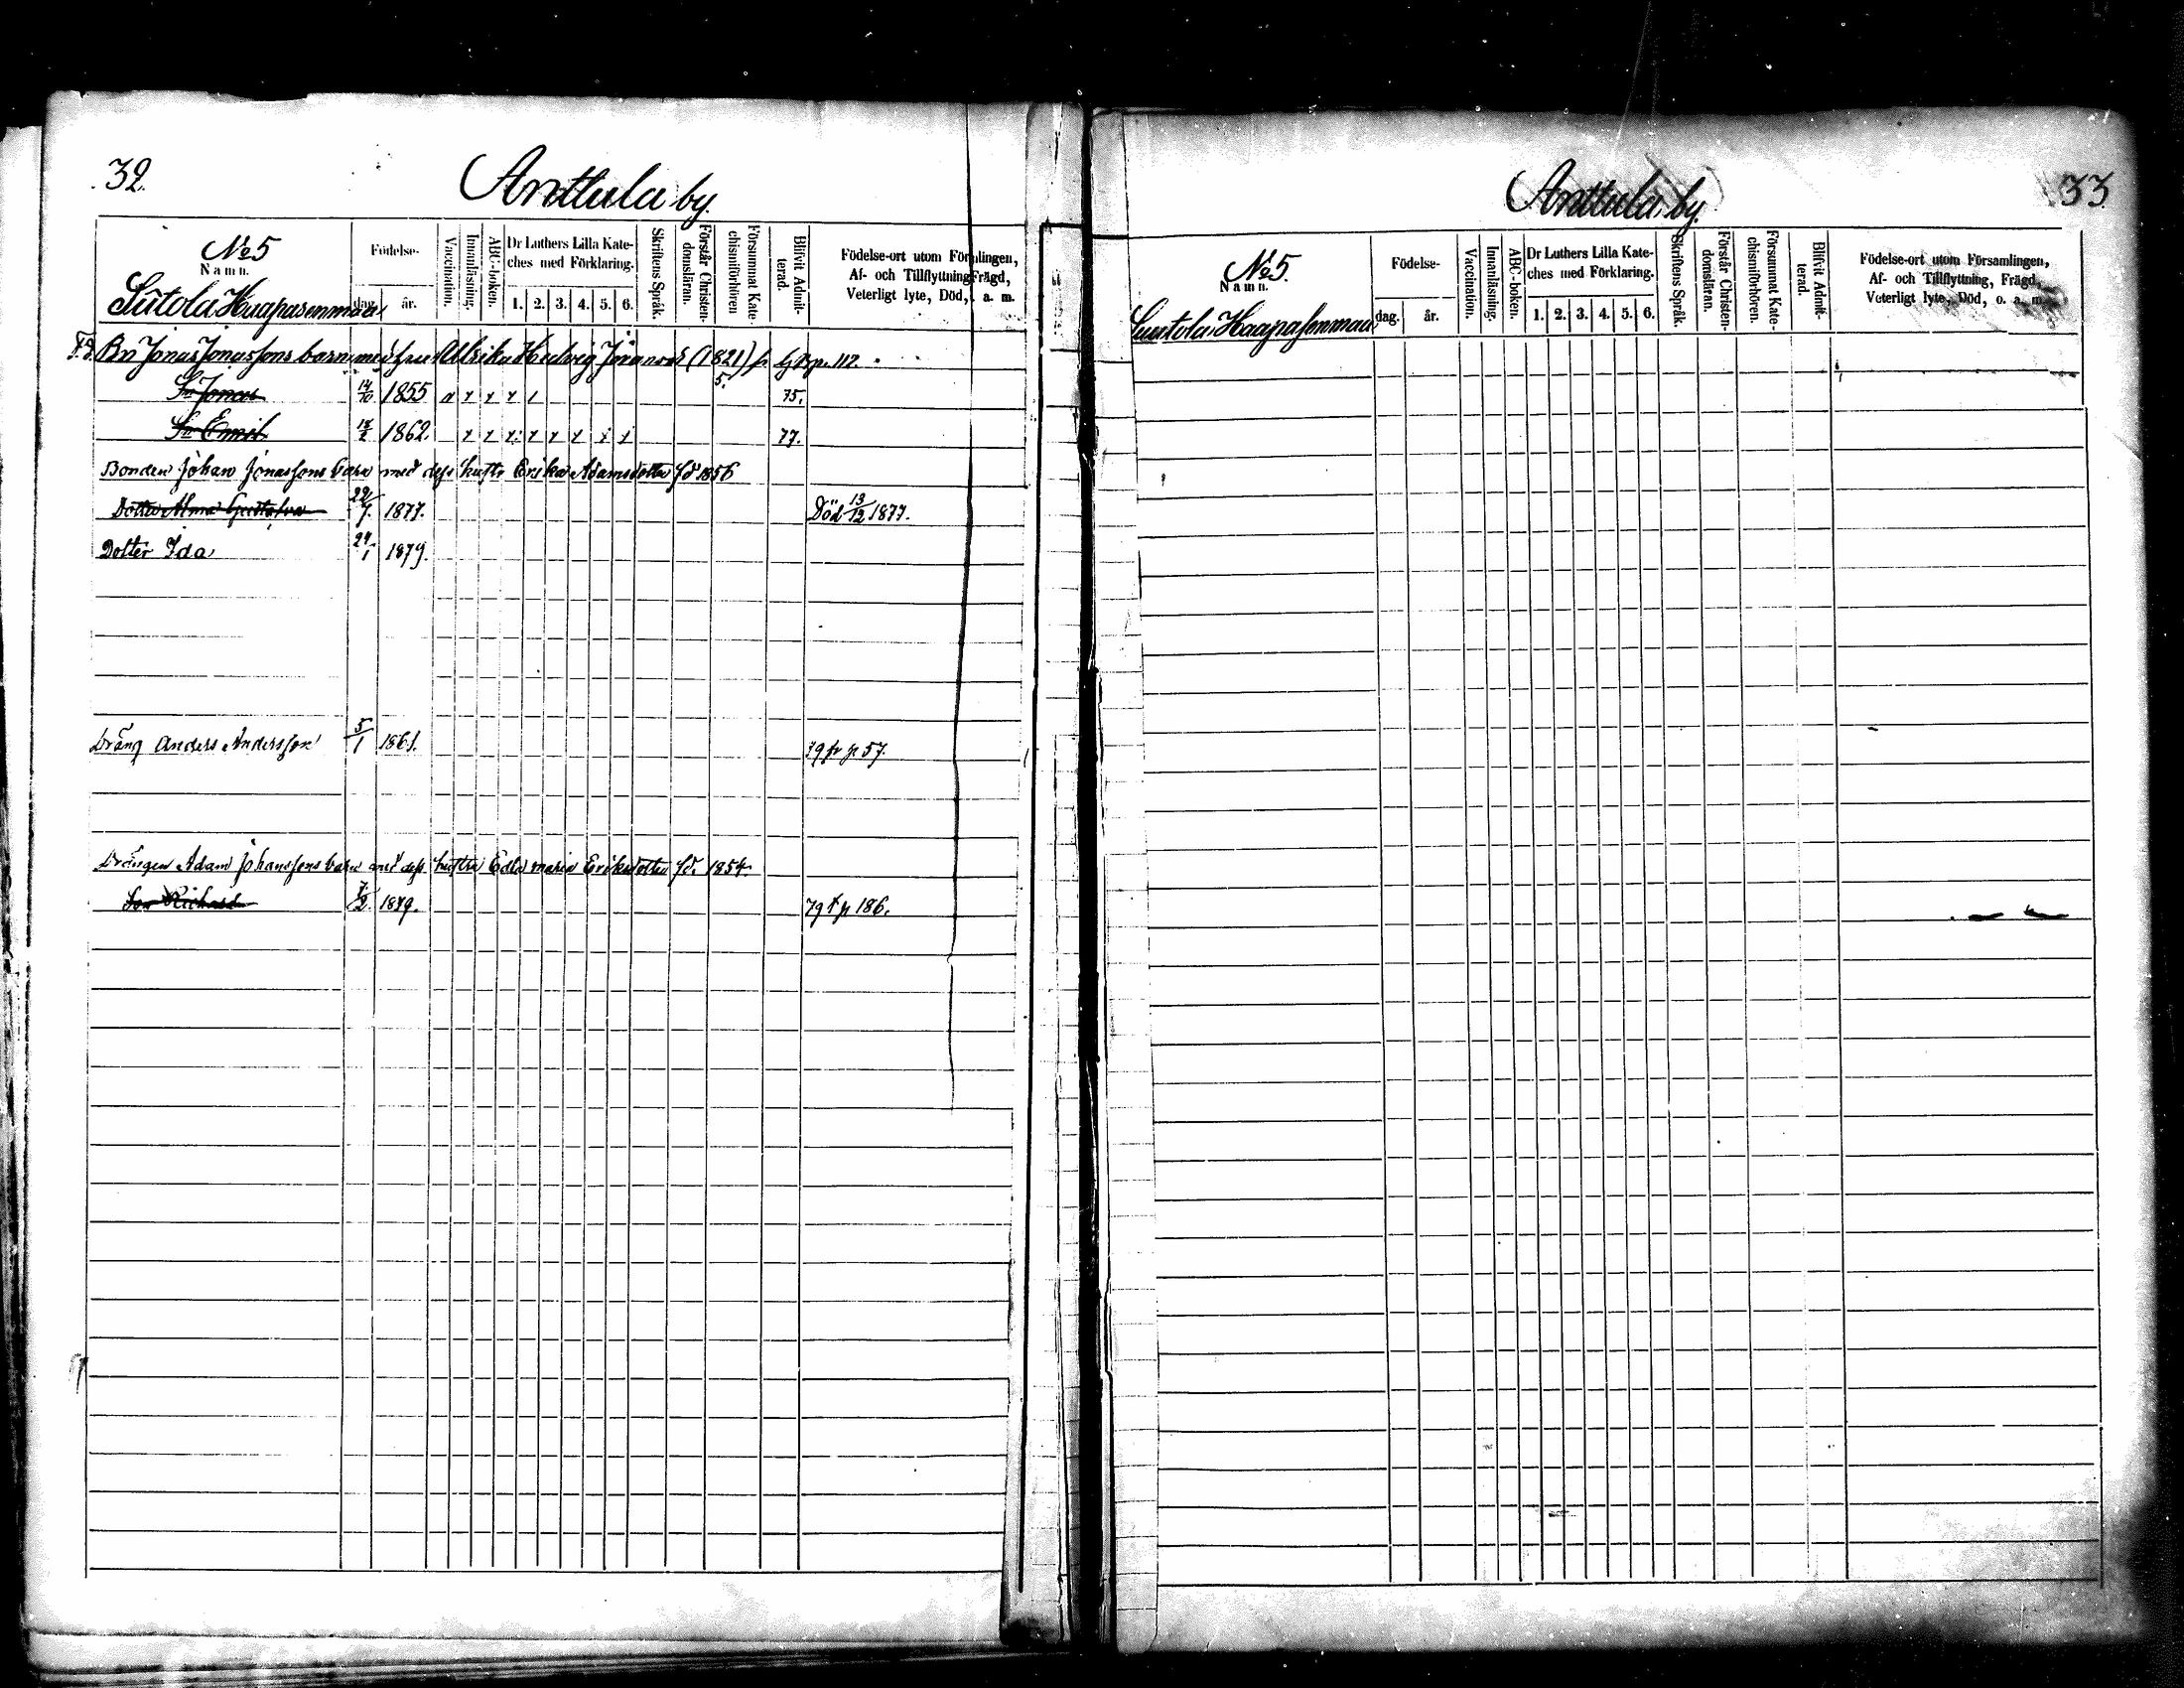 32.
Anttula by.
No 5
Namn.
Födelse-
dag.
år.
Vaccination.
Innanläsning.
ABC-boken.
Dr Luthers Lilla Kate-
ches med Förklaring.
1. 2. 3. 4. 5. 6.
Skriftens Språk.
Förstår Christen-
domsläran.
Försummat Kate-
chismiförhören
Blifvit Admit-
terad.
Födelse-ort utom Församlingen,
Af- och Tillflyttning, Frägd,
Veterligt lyte, Död, o. a. m.
Sutola Haapasenmaa
Bn Jonas Jonassons barn med hu Ulrika Hedvig (1821) p. 117.
Sn Jonas 14/10 1855 x x x x 1 5. 75.
Sn Emil 1862. x x x x x x x x 77.
Bonden Johan Jonassons barn med dess hustr Erika Adamsdotter fd 1856
Dotter Alma Gustafva 22/7. 1877. Död 13/12 1877.
Dotter Ida 24/1 1879.
Dräng Anders Andersson 5/1 1861. 79 fr p 57.
Drängen Adam Johanssons barn med dess hustru Edla Maria Eriksdotter fd. 1854.
Son Richard 7/2. 1879. 79 t p 186.
33
Anttula by.
No 5.
Namn.
Födelse-
dag.
år.
Vaccination.
Innanläsning.
ABC-boken.
Dr Luthers Lilla Kate-
ches med Förklaring.
1. 2. 3. 4. 5. 6.
Skriftens Språk.
Förstår Christen-
domsläran.
Försummat Kate-
chismiförhören.
Blifvit Admit-
terad.
Födelse-ort utom Församlingen,
Af- och Tillflyttning, Frägd,
Veterligt lyte, Död, o. a. m.
Suutola Haapasenmaa